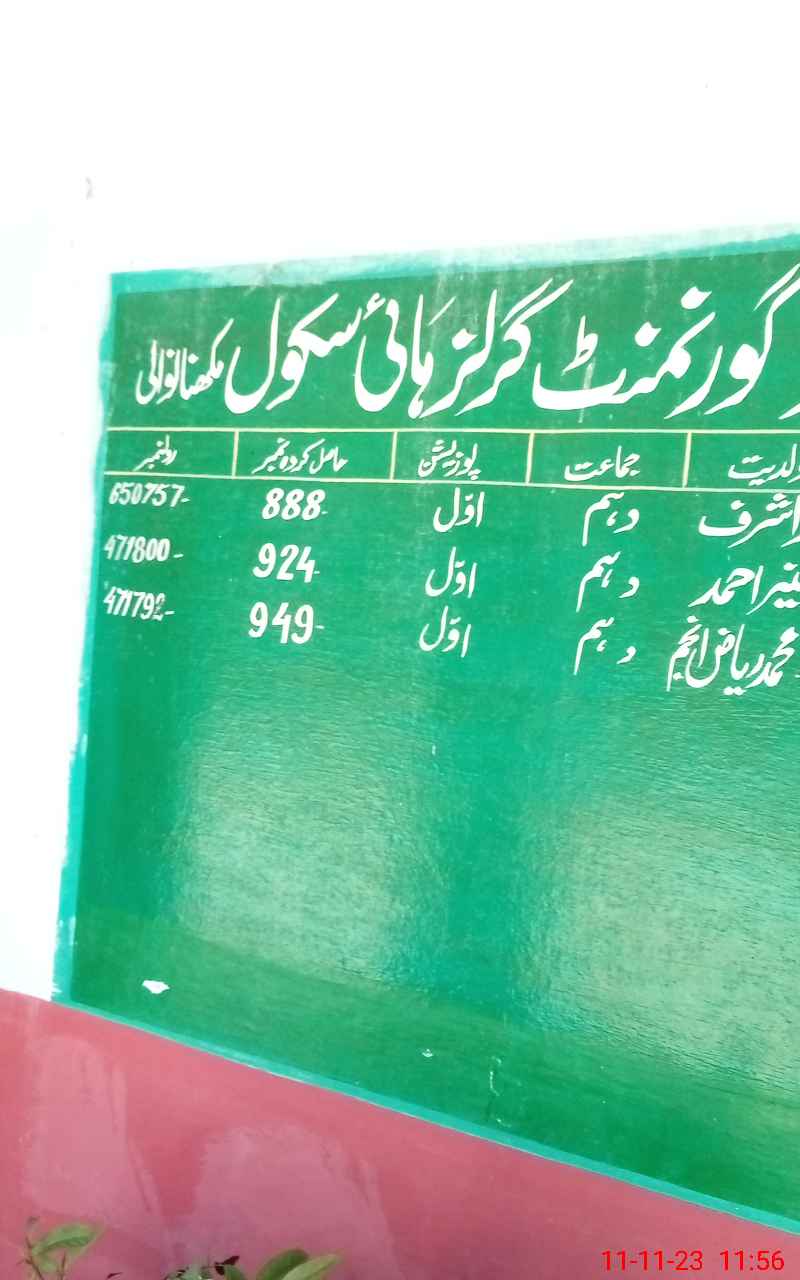 گورنمنٹ گرلز ہائی سکول مکھنانوالی
ولدیت جماعت پوزیشن حاصل کردہ نمبر رولنمبر
اشرف دہم اوّل 888- 650757-
منیر احمد دہم اوّل 924- 471800-
محمد ریاض انجم دہم اوّل 949- 471792-
11-11-23 11:56